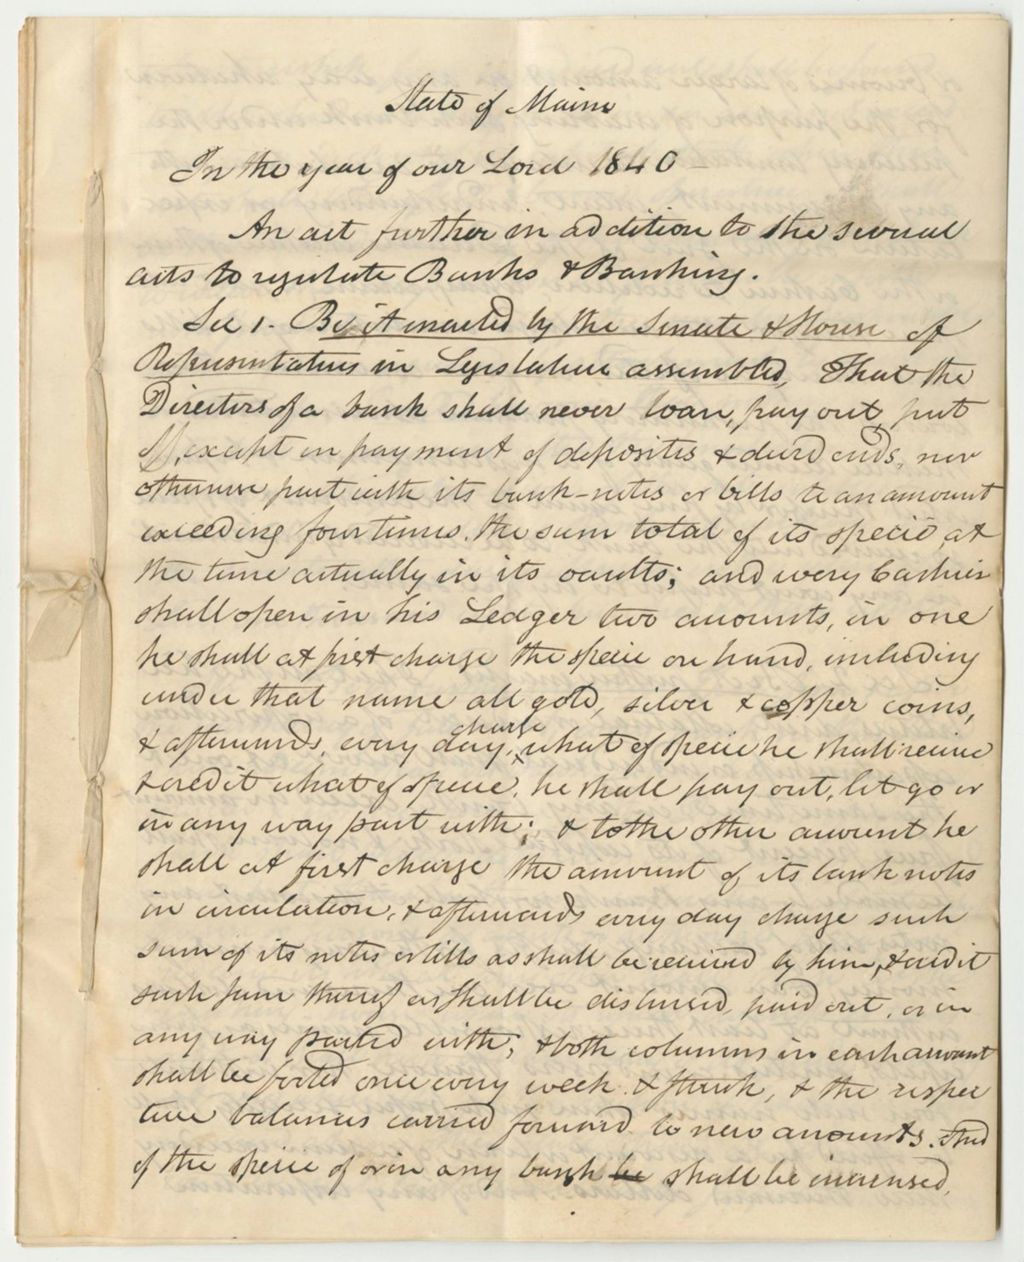 State of Maine
In the year of our Lord 1840 -
An act further in addition to the several
acts to regulate Banks & Banking.
Sec 1. Be it enacted by the Senate & House of
Representatives in Legislature assembled, That the
Directors of a bank shall never loan, pay out, put
off, except in payment of deposites & dividends, nor
otherwise part with its bank-notes or bills to an amount
exceeding four times the sum total of its specie, at
the time actually in its vaults; and every Cashier
shall open in his Ledger two accounts, in one
he shall at first charge the specie on hand, including
under that name all gold, silver & copper coins,
& afterwards, every day, charge what of specie he shall receive
& credit what of specie, he shall pay out, let go or
in any way part with; & to the other account he
shall at first charge the amount of its bank notes
in circulation, & afterwards every day charge such
sum of its notes or bills as shall be received by him, & credit
such sum thereof as shall be disbursed, paid out, or in
any way parted with; & both columns in each account
shall be footed once every week & struck, & the respec
tive balances carried forward to new accounts. And
if the specie of or in any bank be shall be increased,